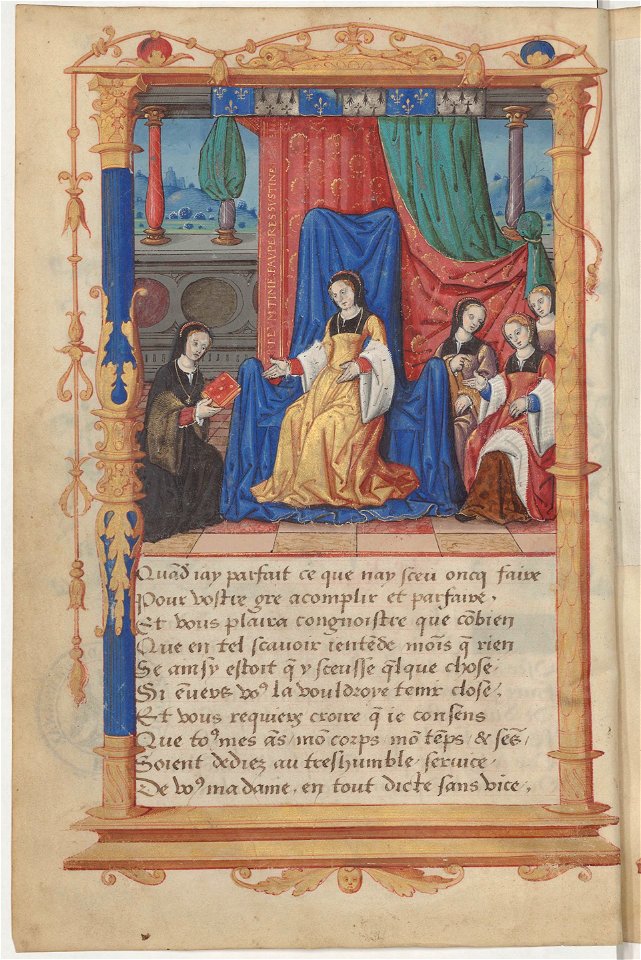 Quãd iay parfait ce que nay sceu oncq faire
Pour vostre gre acomplir et parfaire,
Et vous plaira congnoistre que cõbien
Que en tel scauoir ientẽde moĩs q̃ rien
Se ainsy estoit q̃ y sceusse q̃lque chose.
Si ẽuers voꝰ la vouldroye tenir close.
Et vous requiers croire q̃ ie consens
Que toꝰ mes ãs / mõ corps mõ tẽps / & sẽs,
Soient dediez au treshumble seruice.
De voꝰ madame, en tout dicte sans vice,